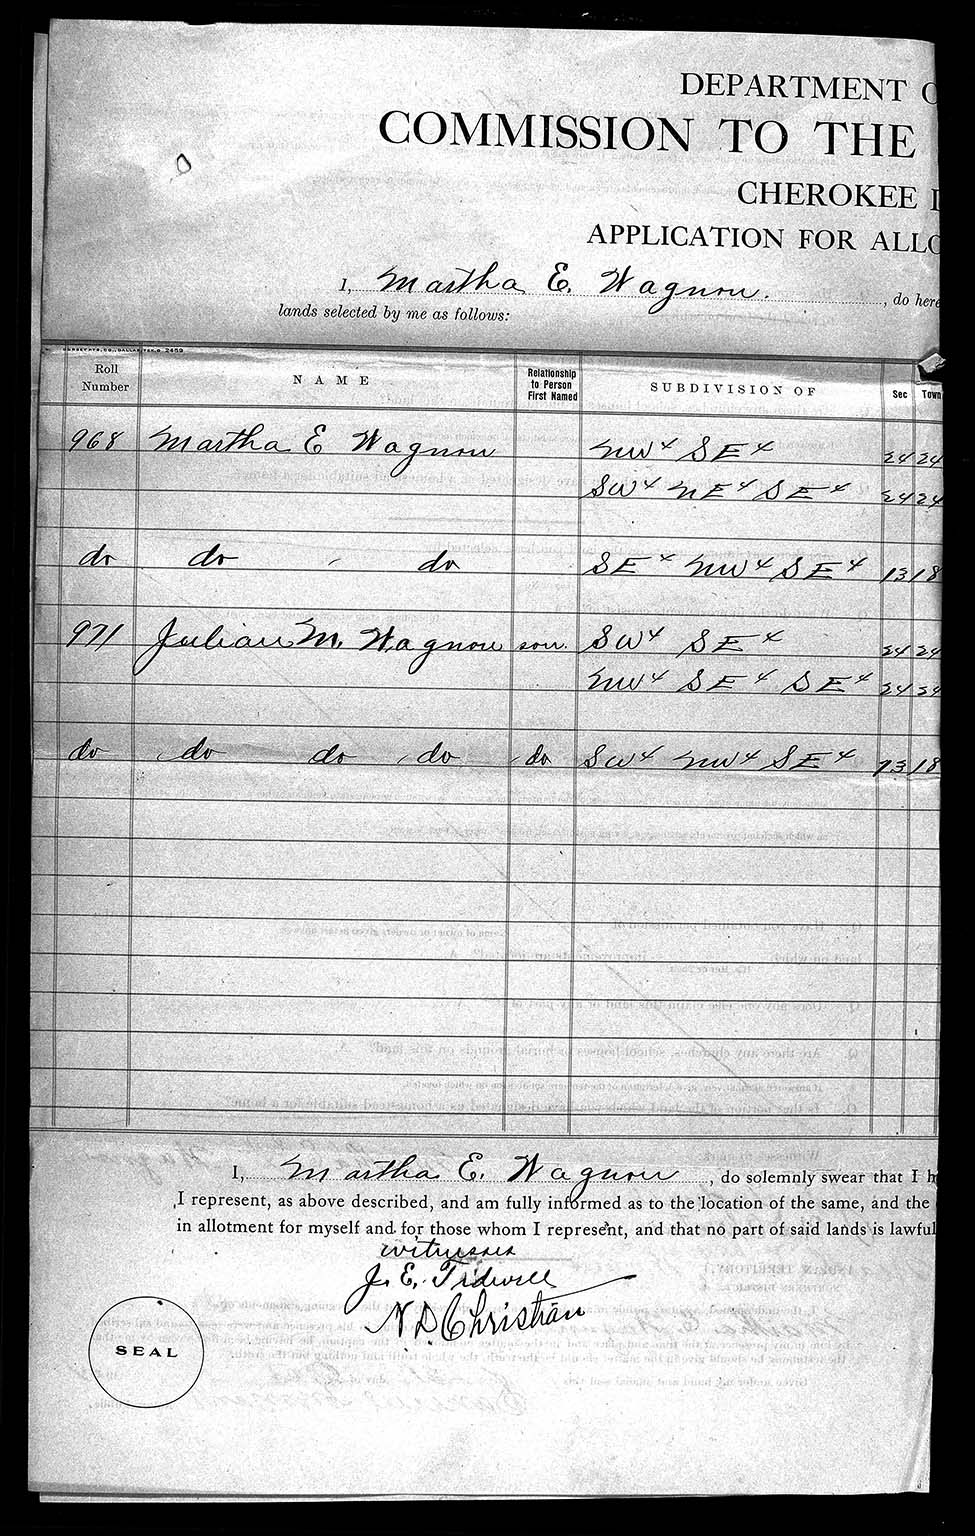 DEPARTMENT O
COMMISSION TO THE
CHEROKEE
APPLICATION FOR ALLO
I, Martha E. Wagnon. , do here
lands selected by me as follows:
Roll Number NAME Relationship to Person First Named SUBDIVISION OF Sec Town
968 Martha E Wagnon NW4 SE4 24 24
SW4 NE4 SE4 24 24
do do do SE4 NW4 SE4 13 18
971 Julian M. Wagnon son. SW4 SE4 24 24
NW4 SE4 SE4 24 24
do do do do do SW4 NW4 SE4 13 18
I, Martha E. Wagnon , do solemnly swear that I h
I represent, as above described, and am fully informed as to the location of the same, and the
in allotment for myself and for those whom I represent, and that no part of said lands is lawful
witnesses
J. E. Tidwell
N D Christian
SEAL